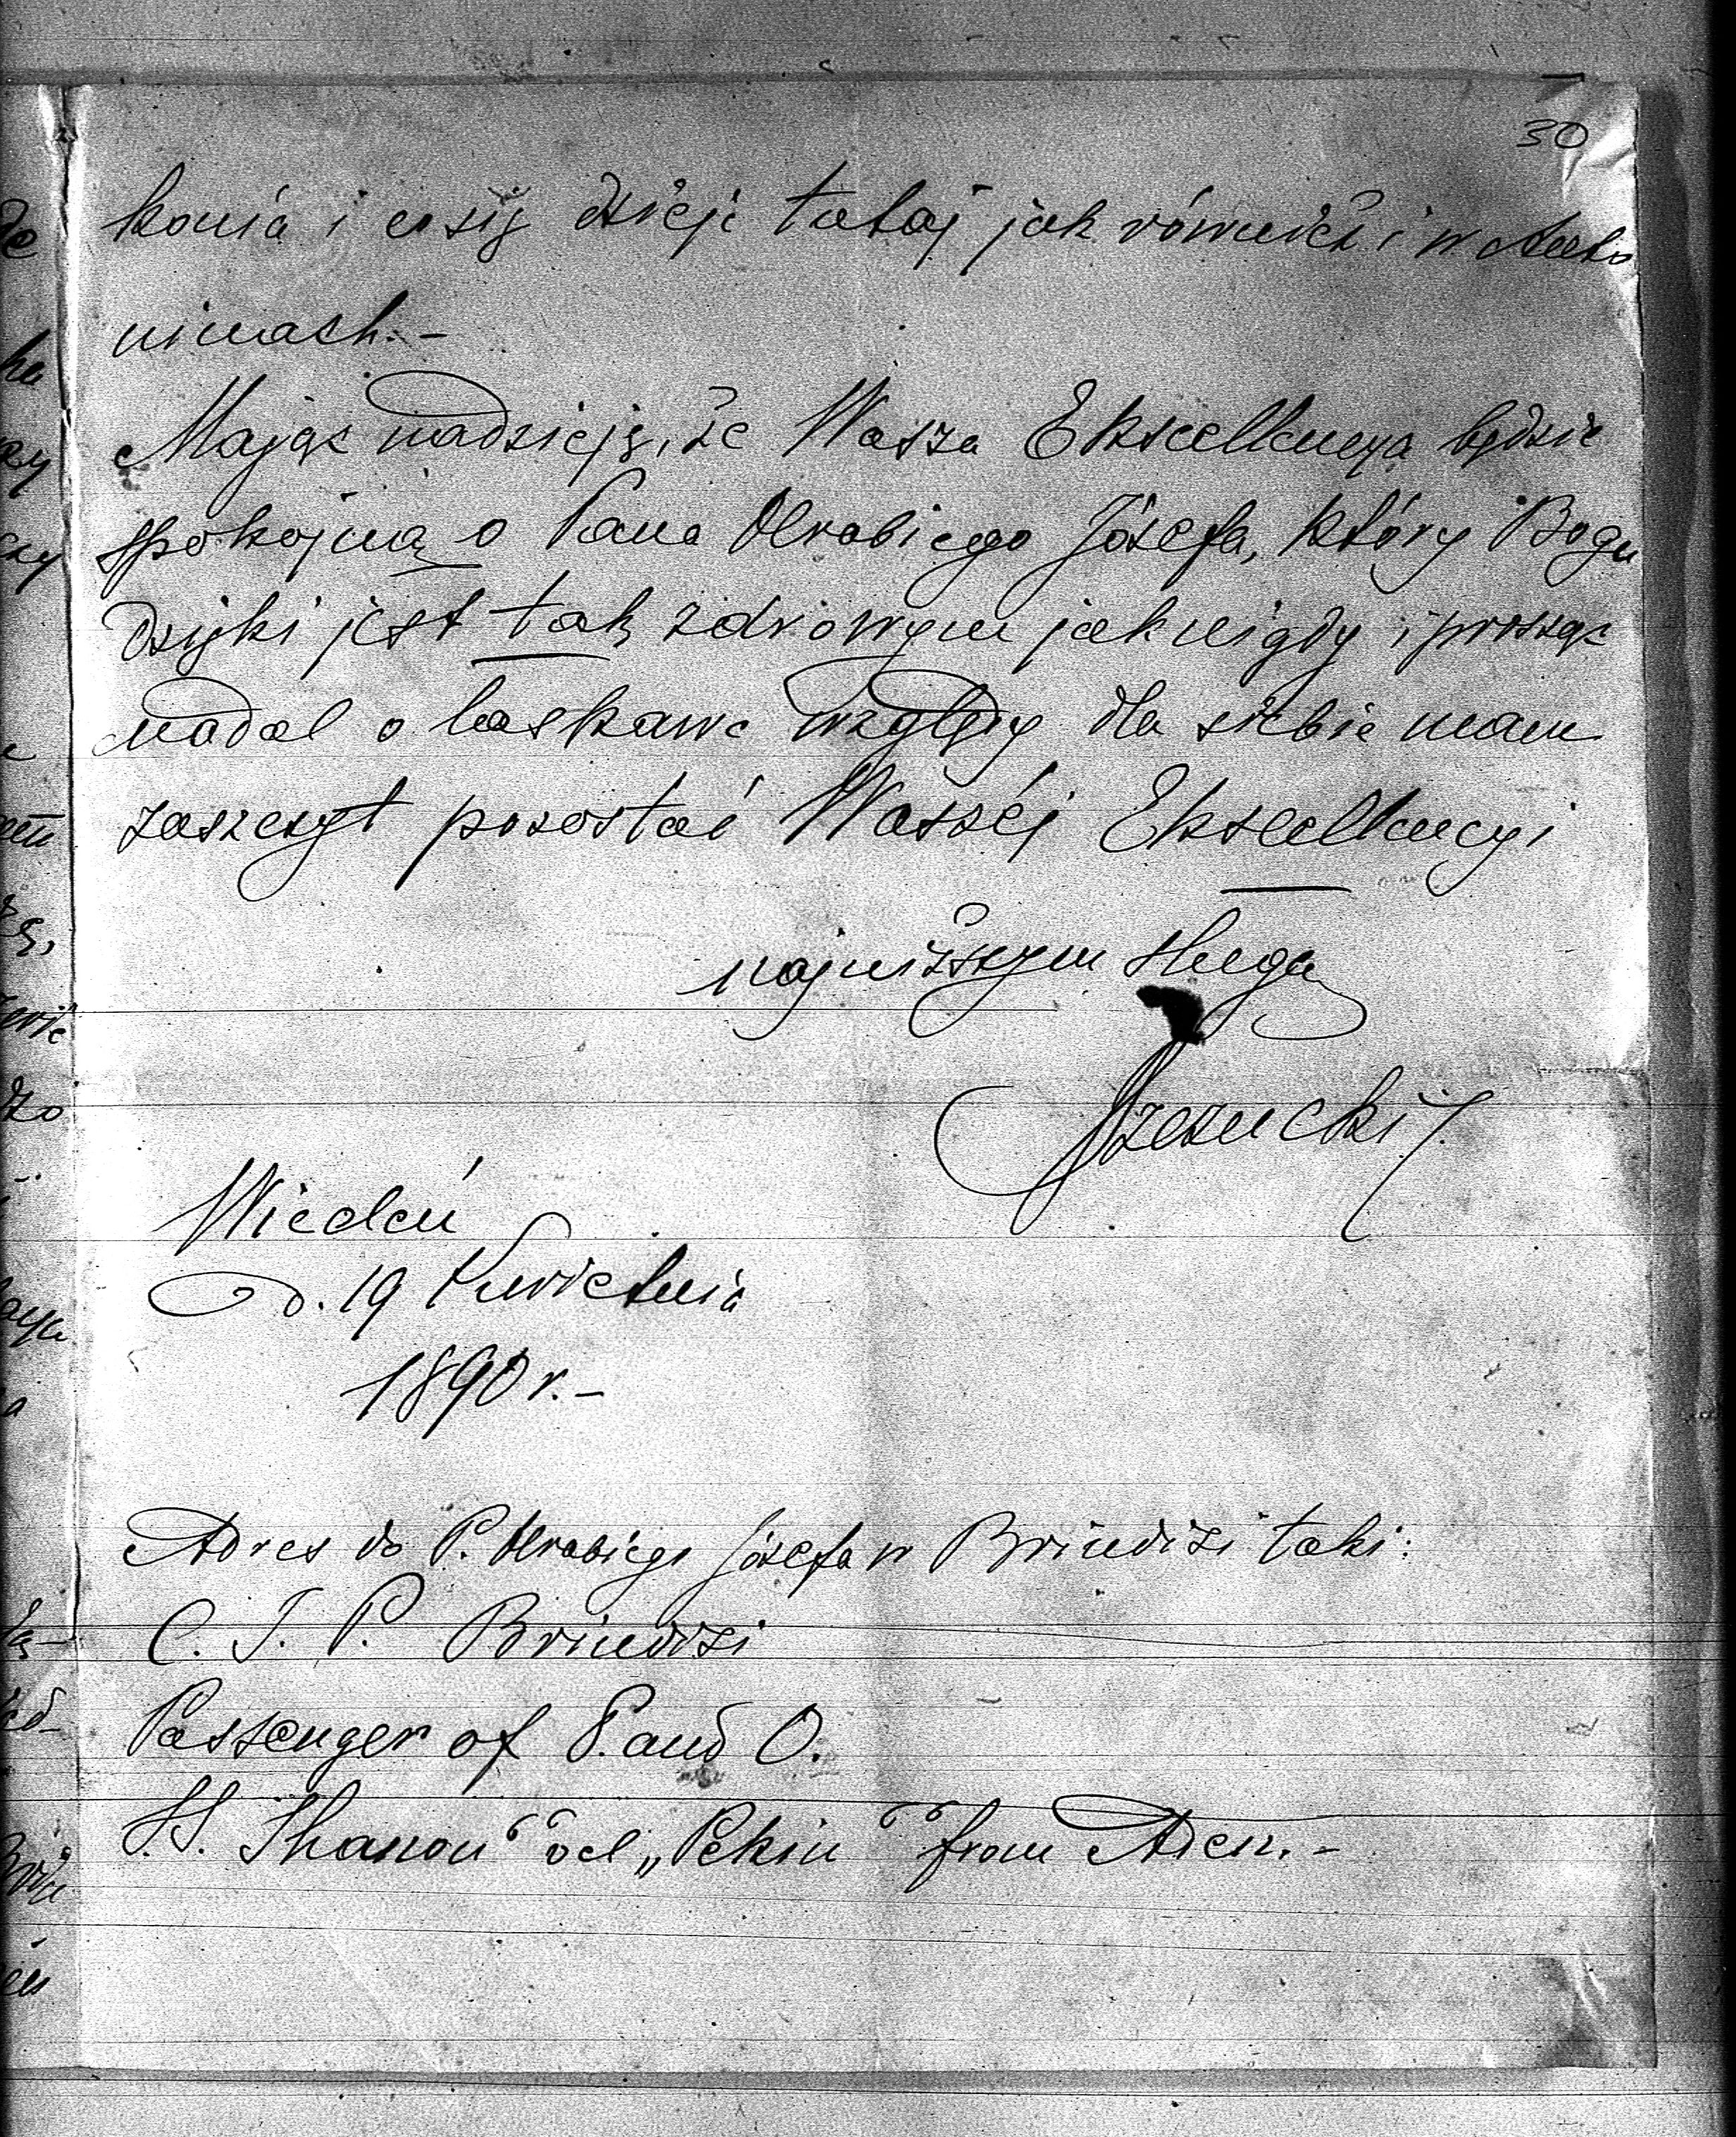 30
konia i co się dzieje tutaj jak również i w Anto
ninach.-
Mając nadzieję, że Wasza Ekscellencya będzie
spokojną o Pana Hrabiego Józefa, który Bogu
dzięki jest tak zdrowym jak nigdy i prosząc
nadal o łaskawe względy dla siebie mam
zaszczyt pozostać Waszéj Ekscellencyi
najniższym sługą
Wiedeń
d. 19 Kwietnia
1890 r.-
Adres do P. Hrabiego Józefa w Brindizi taki:
C. J. P. Brindizi
Passenger of P. and O.
S.S. Shanon" vel „Pekin" from Aden.-